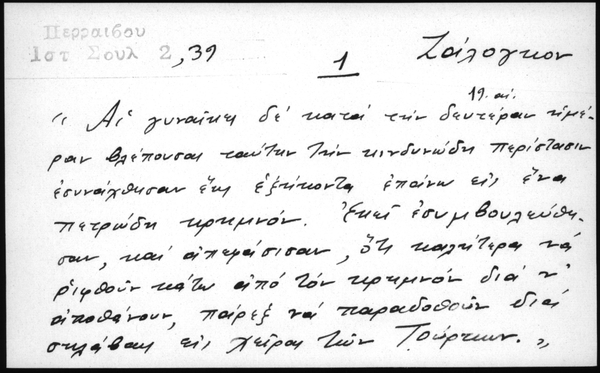 Περραιβου
Ιστ Σουλ 2, 39
1
Ζάλογκον
19. αἰ.
“ Αἱ γυναῖκες δέ κατά τήν δευτέραν ἡμέ-
ραν βλέπουσαι ταύτην τήν κινδυνώδη περίστασιν
ἐσυνάχθησαν ἕως ἑξήκοντα ἐπάνω εἰς ἕνα
πετρώδη κρημνόν. Ἐκεῖ ἐσυμβουλεύθη-
σαν, καί ἀπεφάσισαν, ὅτι καλήτερα νά
ριφθοῦν κάτω ἀπό τόν κρημνόν διά ν'
ἀποθάνουν, πάρεξ νά παραδοθοῦν διά
σκλάβαι εἰς χεῖρας τῶν Τούρκων. „